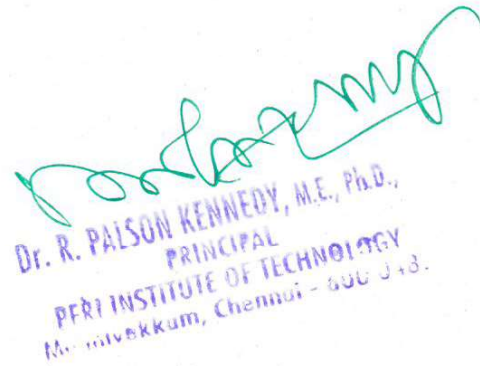 Dr. R. PALSON KENNEDY, M.E., Ph.D.,
PRINCIPAL
PERI INSTITUTE OF TECHNOLOGY
Chennai - 600